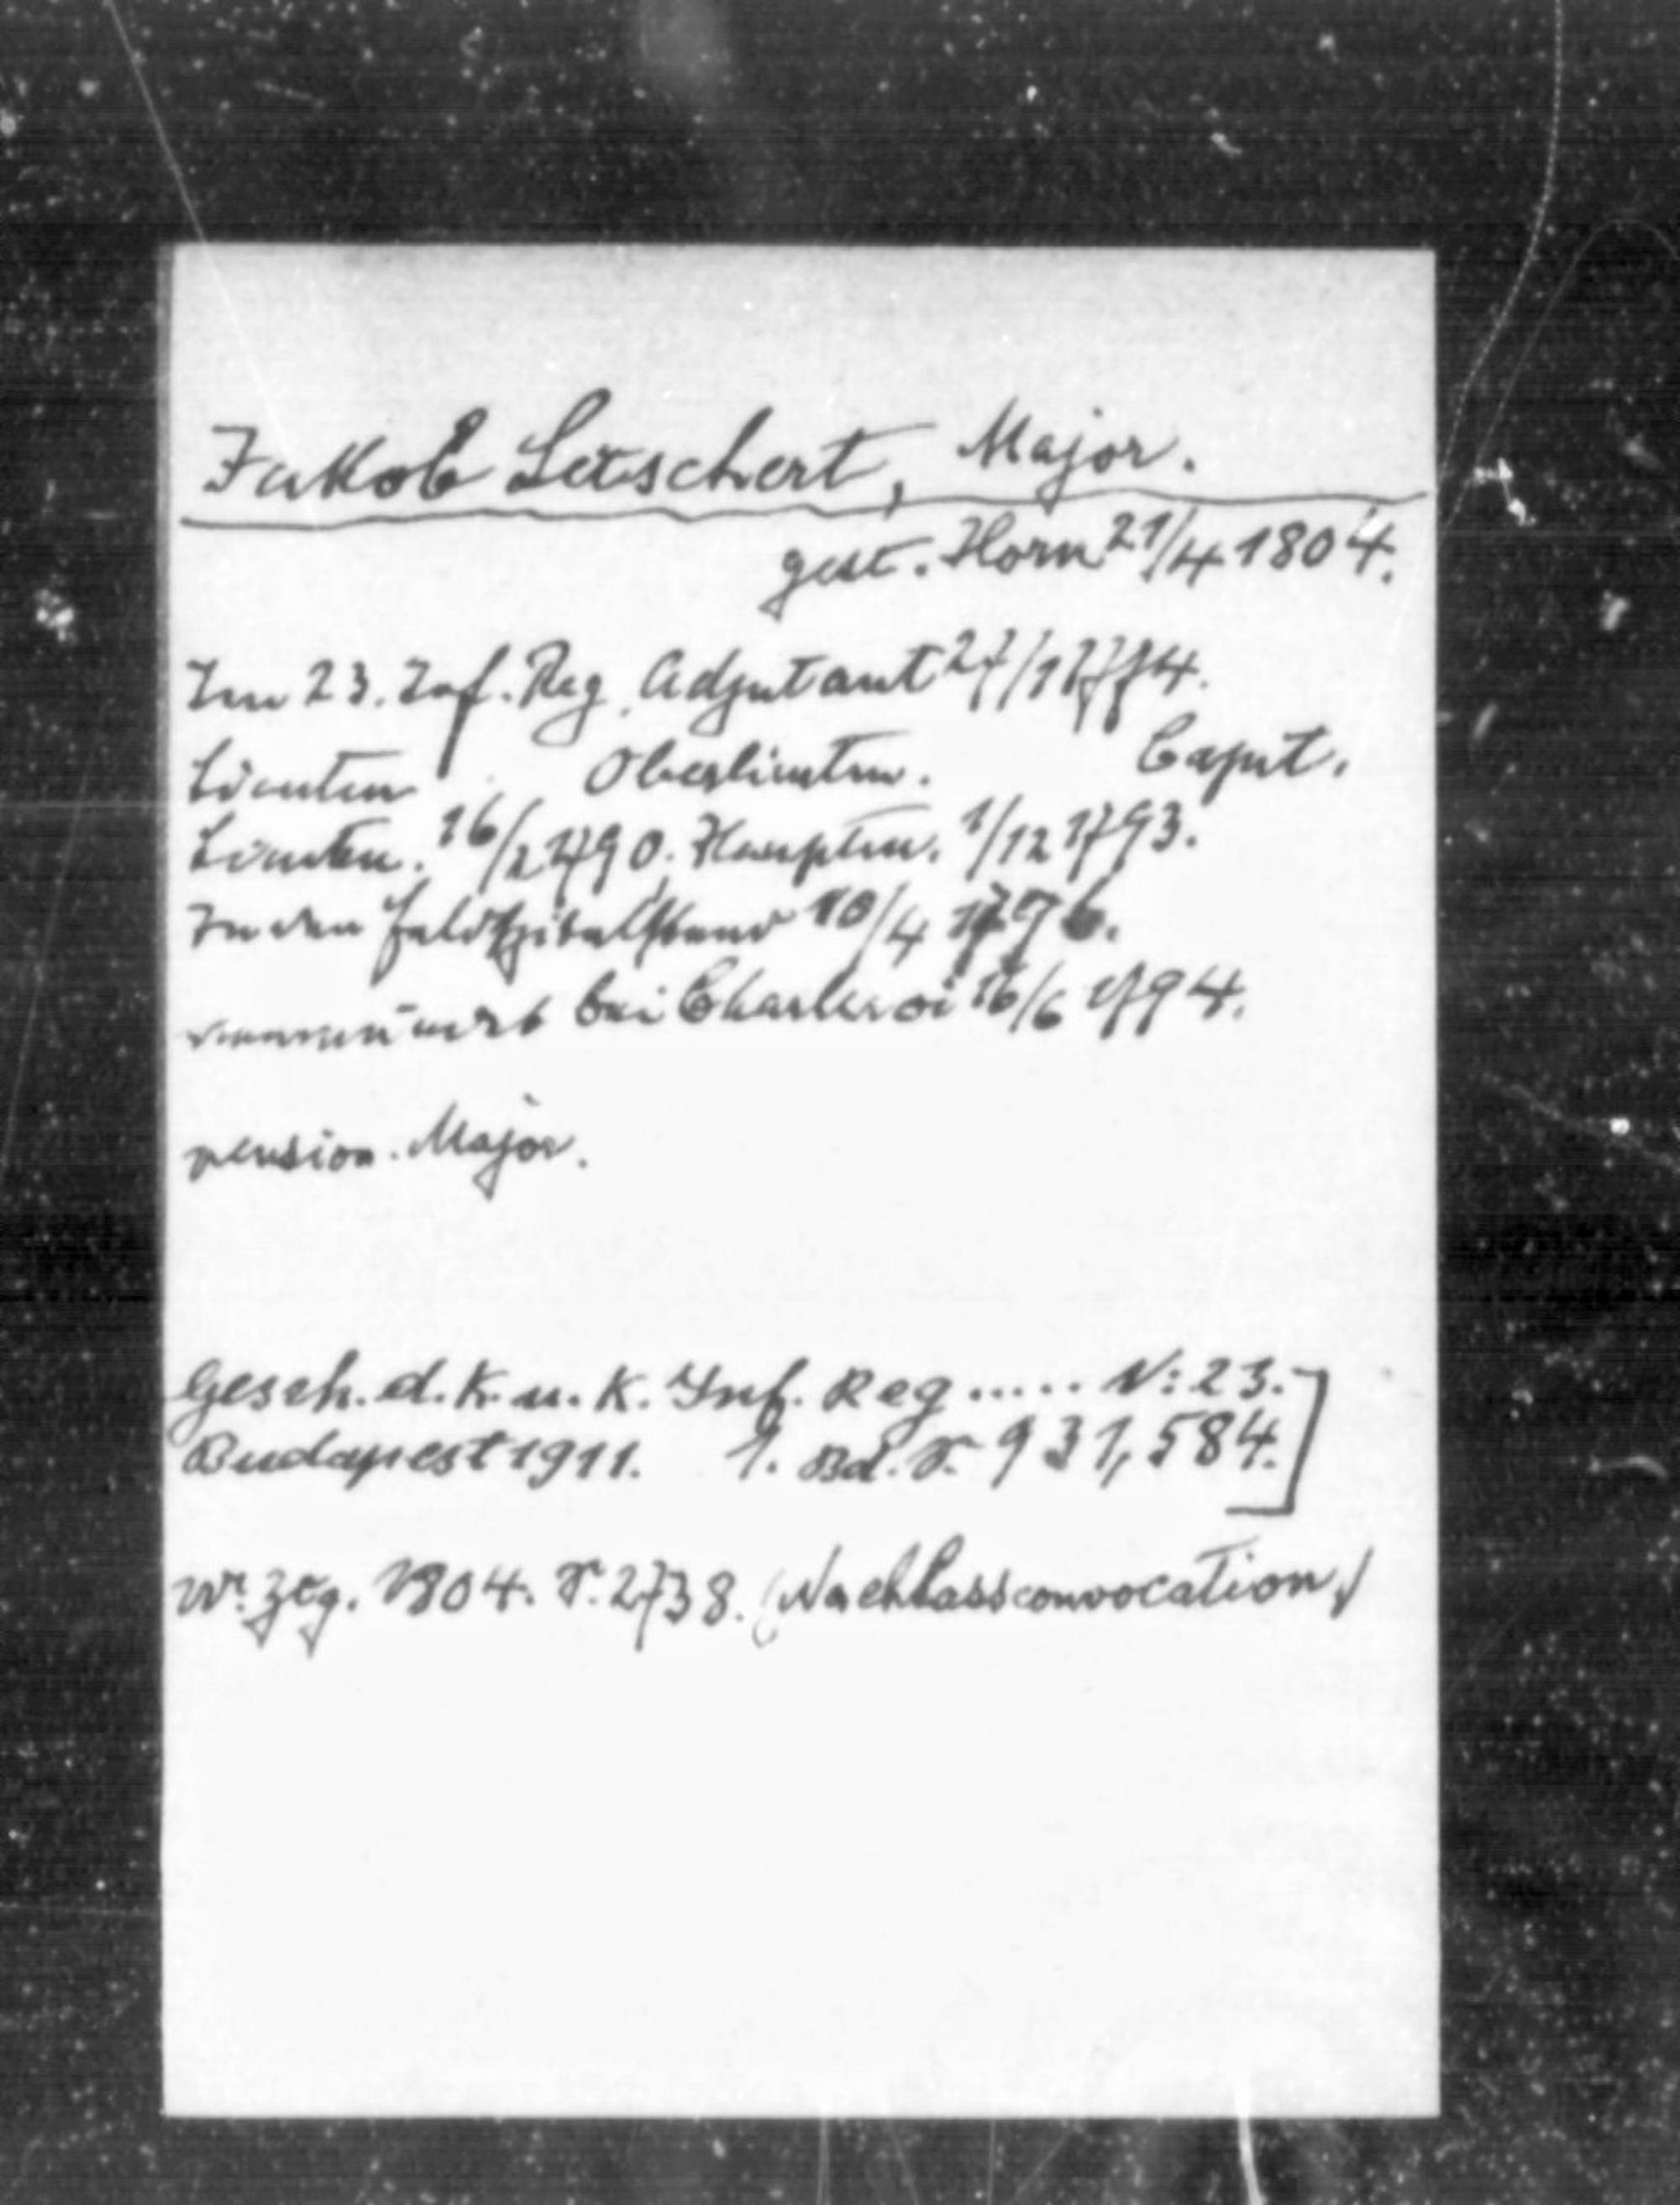 Jakob Letschert, Major.
gest. Horn 21/4 1804.
Im 23. Inf. Reg. Adjutant 27/1 1774.
Lieuten. Oberlieuten. Capit.
Lieuten. 16/2 1790. Hauptm. 1/12 1793.
In den Feldspitalstand 10/4 1796.
verwundet bei Charleroi 16/6 1794.
pension. Major.
Gesch. d. K. u. K. Inf. Reg ..... N: 23.
Budapest 1911. 1. Bd. S. 931, 584.
Wr. Ztg. 1804. S. 2738. (Nachlassconvocation)